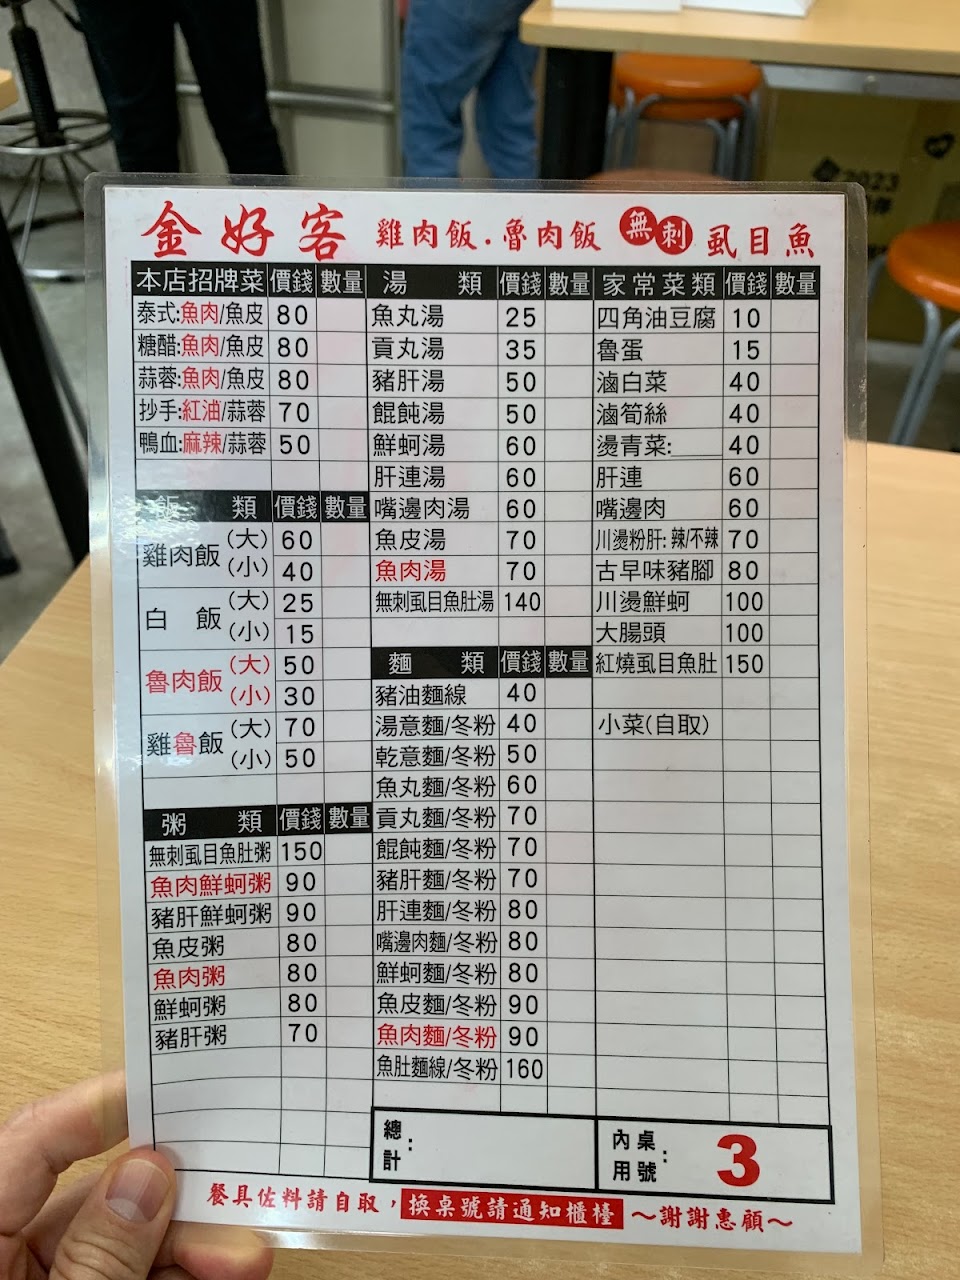 金好客 雞肉飯.魯肉飯 無刺 虱目魚
本店招牌菜 價錢 數量
泰式:魚肉/魚皮 80
糖醋:魚肉/魚皮 80
蒜蓉:魚肉/魚皮 80
抄手:紅油/蒜蓉 70
鴨血:麻辣/蒜蓉 50
飯 類 價錢 數量
雞肉飯 (大) 60
(小) 40
白 飯 (大) 25
(小) 15
魯肉飯 (大) 50
(小) 30
雞魯飯 (大) 70
(小) 50
粥 類 價錢 數量
無刺虱目魚肚粥 150
魚肉鮮蚵粥 90
豬肝鮮蚵粥 90
魚皮粥 80
魚肉粥 80
鮮蚵粥 80
豬肝粥 70
湯 類 價錢 數量
魚丸湯 25
貢丸湯 35
豬肝湯 50
餛飩湯 50
鮮蚵湯 60
肝連湯 60
嘴邊肉湯 60
魚皮湯 70
魚肉湯 70
無刺虱目魚肚湯 140
麵 類 價錢 數量
豬油麵線 40
湯意麵/冬粉 40
乾意麵/冬粉 50
魚丸麵/冬粉 60
貢丸麵/冬粉 70
餛飩麵/冬粉 70
豬肝麵/冬粉 70
肝連麵/冬粉 80
嘴邊肉麵/冬粉 80
鮮蚵麵/冬粉 80
魚皮麵/冬粉 90
魚肉麵/冬粉 90
魚肚麵線/冬粉 160
家常菜類 價錢 數量
四角油豆腐 10
魯蛋 15
滷白菜 40
滷筍絲 40
燙青菜:____ 40
肝連 60
嘴邊肉 60
川燙粉肝:辣/不辣 70
古早味豬腳 80
川燙鮮蚵 100
大腸頭 100
紅燒虱目魚肚 150
小菜(自取)
總計:
內用桌號: 3
餐具佐料請自取,換桌號請通知櫃檯 ～謝謝惠顧～
2023